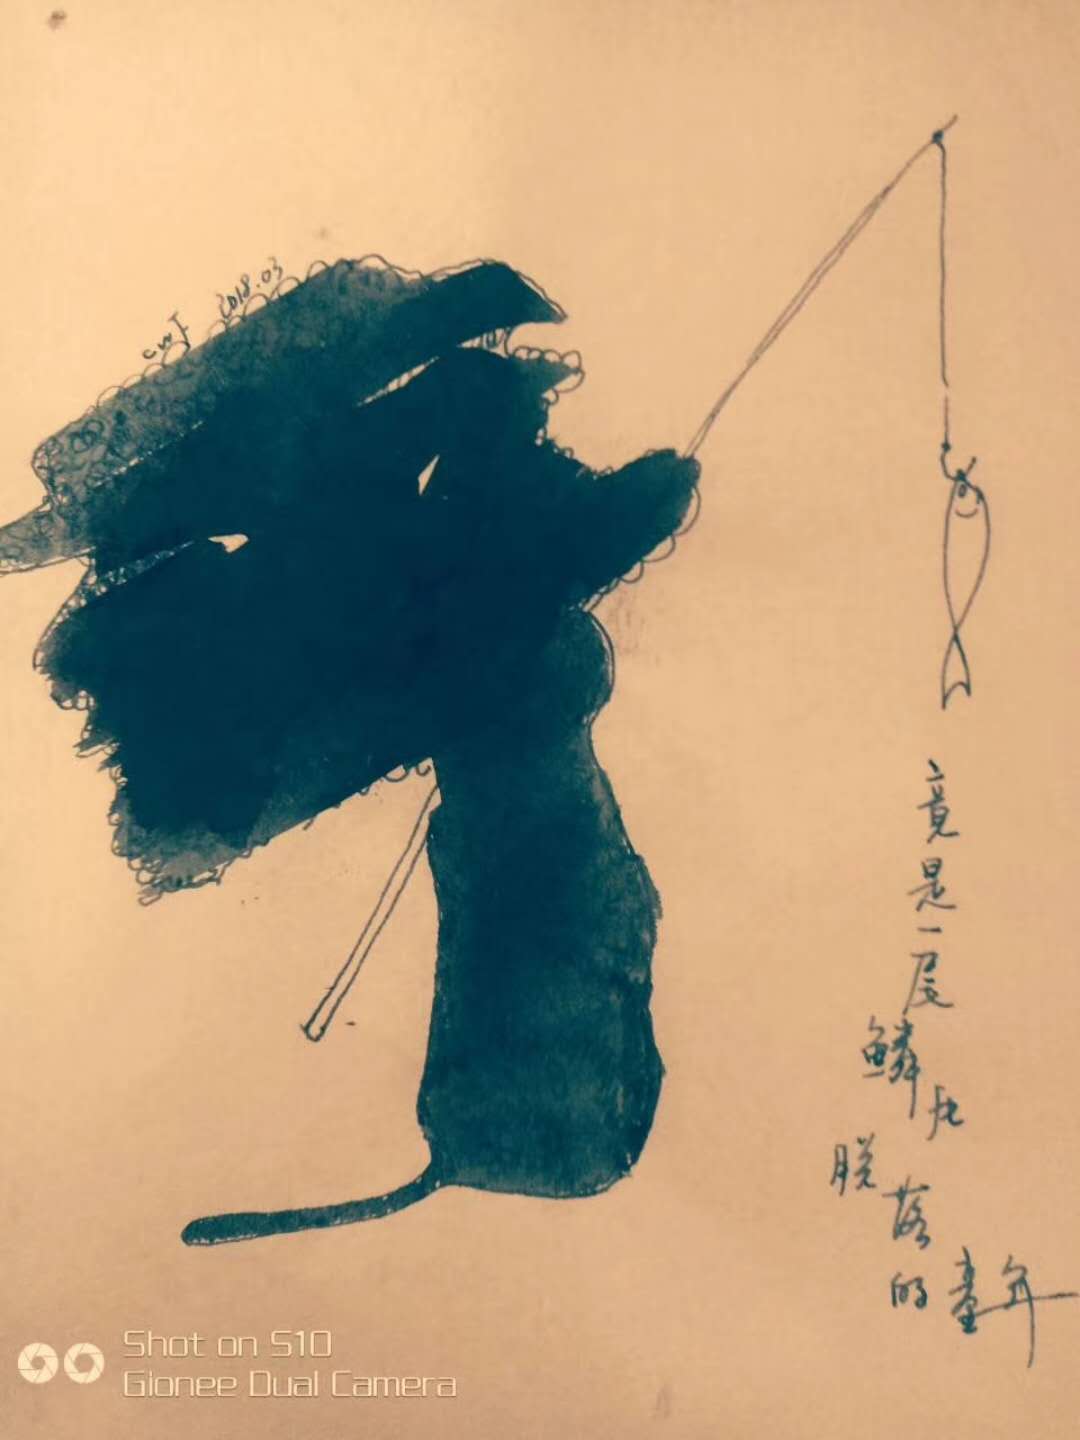 cwj 2018.03
竟是一尾
鳞片
脱落
的童年
Shot on S10
Gionee Dual Camera